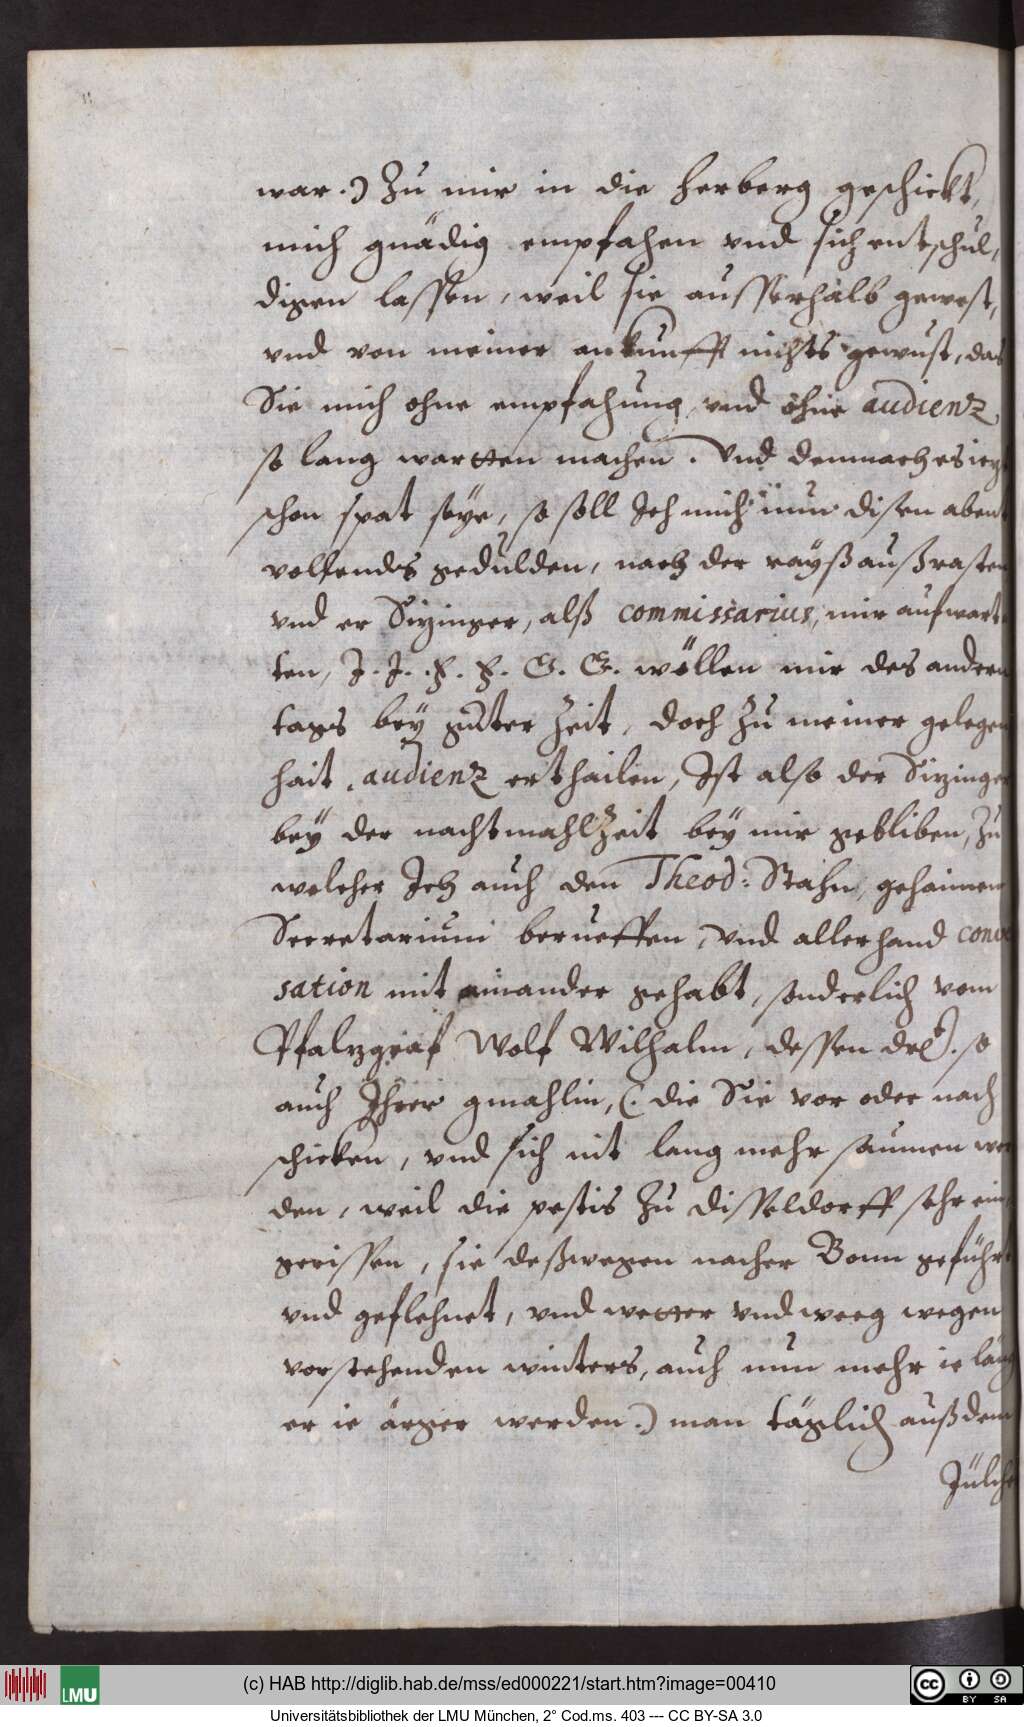 war.) Zu mir in die herberg geschickt,
mich gnädig empfahen vnd sich entschul,
digen lassen, weil sie ausserhalb gewest,
vnd von meiner ankunfft nichts gewust, das
Sie mich ohne empfahung, vnd ohne audienz
so lang wartten machen. Vnd demnach es iez
schon spat seye, so soll Ich mich nun disen aben
vollendts gedulden, nach der rayß außrasten
vnd er Sizinger, alß commissarius, mir aufwart
ten, I. I. F. F. G. G. wöllen mir des andern
tags bey guter Zeit, doch Zu meiner gelegen
hait, audienz erthailen, Ist also der Sizinger
bey der nachtmahlZeit bey mir gebliben, Zu
welcher Ich auch den Theod: Stahn, gehaimen
Secretarium berueffen, vnd allerhand conve
sation mit ainander gehabt, sonderlich vom
Pfalzgraf Wolf Wilhalm, dessen drl. so
auch Ihrer gmahlin, (. die Sie vor oder nach
schicken, vnd sich nit lang mehr saumen wer
den, weil die pestis Zu Disseldorff sehr ein
gerissen, sie deßwegen nacher Bonn geführt
vnd geflehnet, vnd wetter vnd weeg wegen
vorstehenden winters, auch nun mehr ie läng
er ie ärger werden.) man täglich auß dem
Jülch
(c) HAB http://diglib.hab.de/mss/ed000221/start.htm?image=00410
LMU
BY SA
Universitätsbibliothek der LMU München, 2° Cod.ms. 403 --- CC BY-SA 3.0